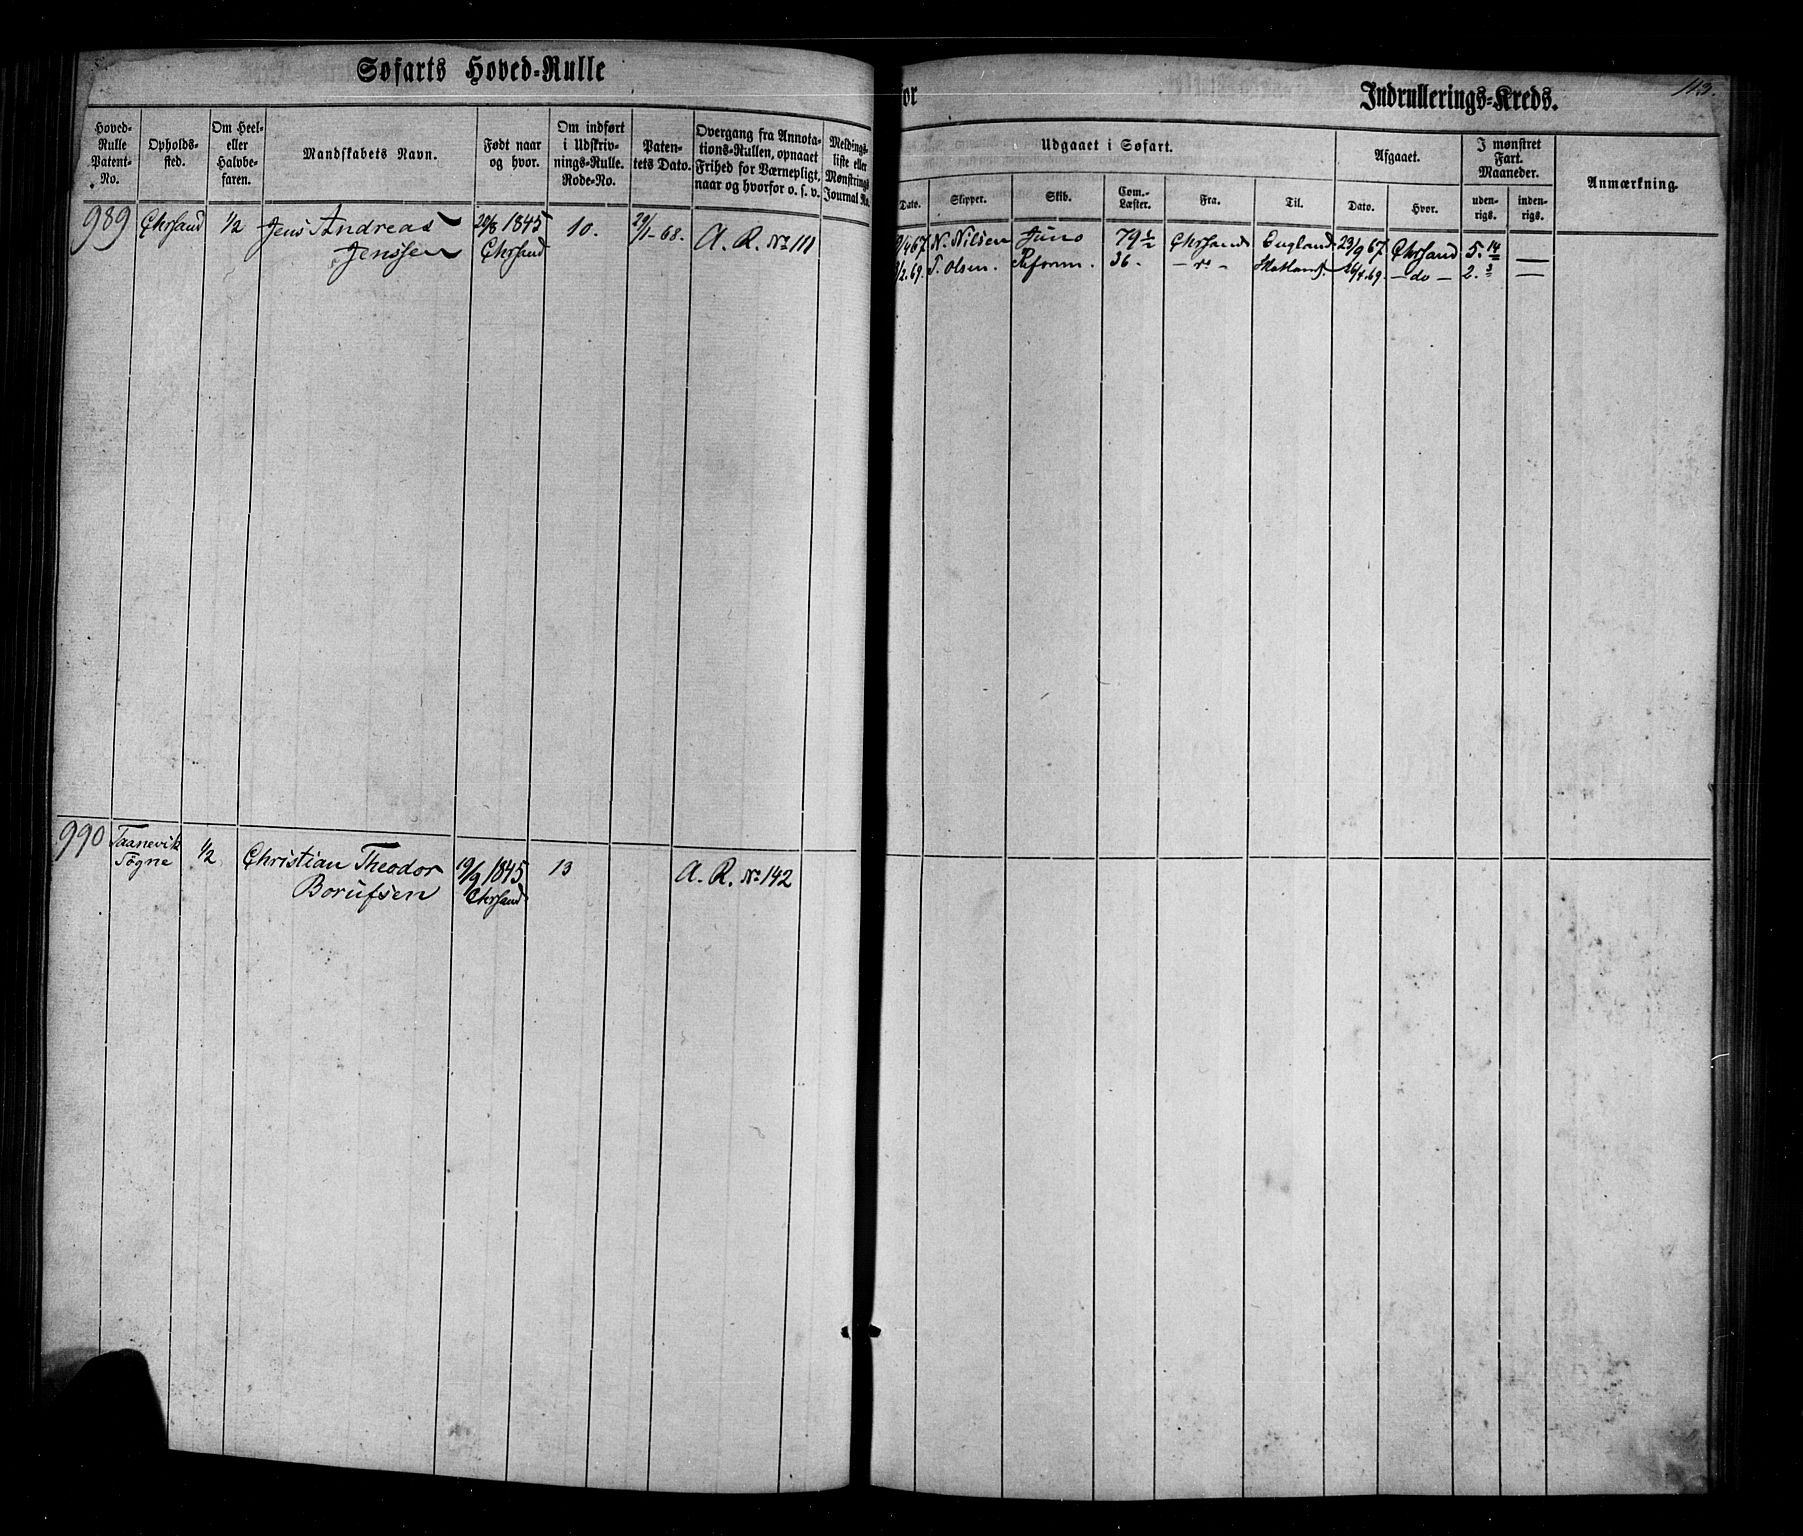 Søfarts Hoved-Rulle
for Indrullerings-Kreds.
113.
Hoved-Rulle Patent-No.
Opholds-sted.
Om Heel- eller Halvbe-faren.
Mandskabets Navn.
Født naar og hvor.
Om indført i Udskriv-nings-Rulle. Rode-No.
Paten-tets Dato.
Overgang fra Annota-tions-Rullen, opnaaet Frihed for Værnepligt, naar og hvorfor o. s. v.
Meldings-liste eller Mønstrings Journal No.
Udgaaet i Søfart.
Afgaaet.
I mønstret Fart. Maaneder.
Anmærkning.
Dato. Skipper. Skib. Com.-Læster. Fra. Til. Dato. Hvor. uden-rigs. inden-rigs.
989 Chrsand 1/2 Jens Andreas 1845 10. 29/1-68. A. R. No 111
Jenssen Chrsand
/4 67. N. Nilsen Juno 79 1/2 Chrsand England 23/9 67. Chrsand 5. 14 —
/2.69. T. Olsen. Reform. 36. Skotland. 26/4.69. —do— 2. 3 —
990 Taanevik 1/2 Christian Theodor 19/9 1845 13 A. R. No 142
Søgne Borufsen Chrsand